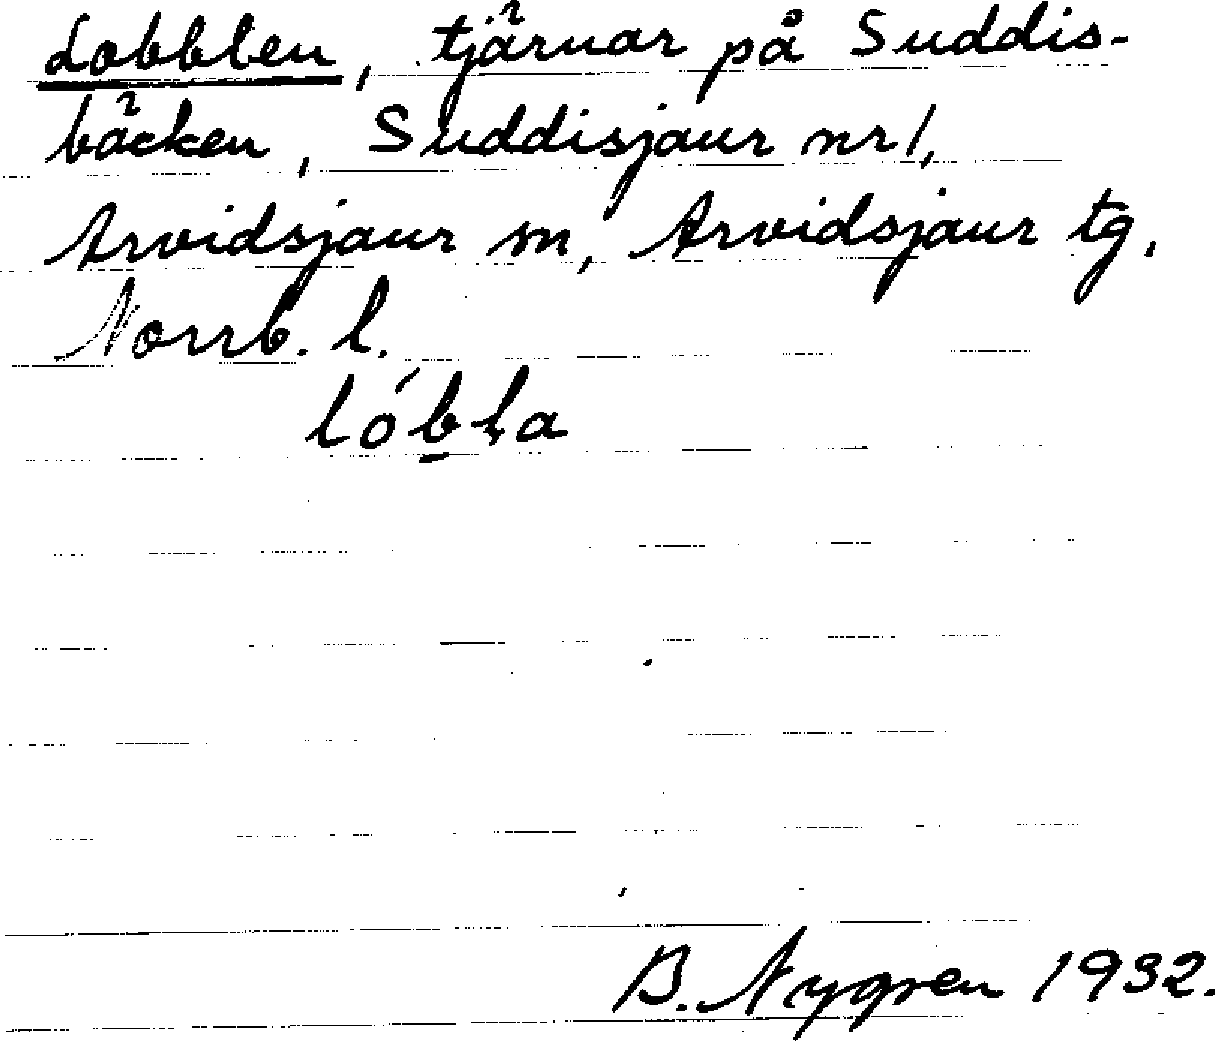 Lobblen, tjärnar på Suddis-
bäcken, Suddisjaur nr 1,
Arvidsjaur sn, Arvidsjaur tg.
Norrb. l.
lób̲l̥a
B. Nygren 1932.